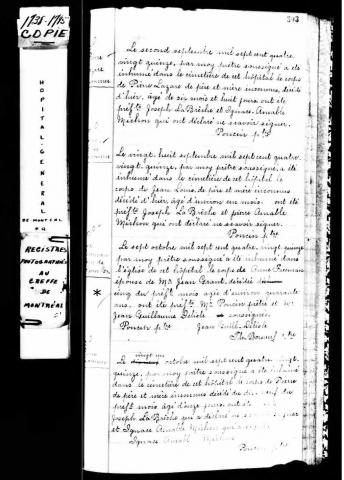 1731-1795
COPIE
HOPITAL-GENERAL
DE MONTREAL
P.Q.
REGISTRES
PHOTOGRAPHIÉS
AU
GREFFE
DE
MONTRÉAL
*
Le second septembre mil sept cent quatre
vingt quinze, par moy prêtre soussigné a été
inhumé dans le cimetière de cet hôpital le corps
de Pierre Lazare de père et mère inconnus, décédé
d'hier, âgé de six mois et huit jours ont été
présts Joseph La Brèche et Ignace Amable
Michon qui ont déclaré ne scavoir signer.
Poncin ptre
Le vingt huit septembre mil sept cent quatre
vingt quinze, par moy prêtre soussigné, a été
inhumé dans le cimetière de cet hôpital le
corps de Jean Louis de père et mère inconnus
décédé d'hier, âgé d'environ un mois. ont été
présts Joseph La Brèche et pierre Amable
Michon qui ont déclaré ne scavoir signer.
Poncin ptre
Le sept octobre mil sept cent quatre vingt quinze
par moy prêtre soussigné a été inhumé dans
l'église de cet hôpital le corps de Anne
épouse de Mr Jean Grant, décédée
cinq du présent mois agée d'environ quarante
ans, ont été présts Mr Poncin prêtre et Mr
Jean Guillaume Delisle soussignés.
Poncin ptre Jean Guill. Delisle
ptre
vingt un
Le octobre mil sept cent quatre vingt
quinze, par moy prêtre soussigné a été inhumé
dans le cimetière de cet hôpital le corps de Pierre
de père et mère inconnus décédé du dix neuf du
présent mois âgé d'onze jours, ont été
Joseph La Brèche qui a déclaré ne scavoir signer
et Ignace Amable Michon qui a
Ignace Amable Michon
Poncin ptre